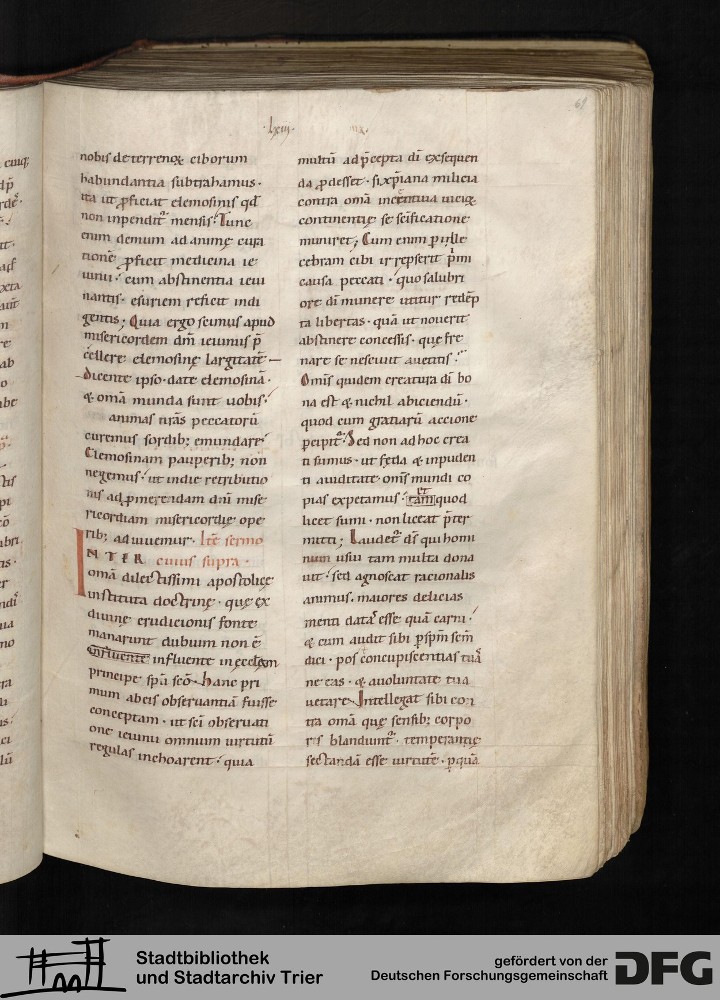 ·lxiii·
61
nobis deterrenoꝝ ciborum
habundantia subtrahamus·
ita ut ꝓficiat elemosinis qd̄
non inpendit᷑ mensis· Tunc
enim demum ad animę cura
tionē ꝓficit medicina ie
iunii· cum abstinentia ieiu
nantis· esuriem reficit indi
gentis; Quia ergo scimus apud
misericordem dm̄ ieiuniis p̄
cellere elemosinę largitatē
dicente ipso· date elemosinā·
& omā munda sunt uobis·
animas nr̄as peccatorū
curemus sordib; emundare
Elemosinam pauperib; non
negemus· ut in die retributio
nis ad ꝓmerendam dni mise
ricordiam misericordię ope
rib; adiuuemur· Itē sermo
INTER cuius supra·
omā dilectissimi apostolicę
instituta doctrinę· quę ex
diuinę erudicionis fonte
manarunt dubium non ē
influente in ęcclesiam
principe spū scō· hanc pri
mum ab eis obseruantiā fuisse
conceptam· ut sc̄i obseruati
one ieiunii omnium uirtutū
regulas inchoarent· quia
multū ad p̄cepta dī exsequen
da ꝓdesset· si xp̄iana milicia
contra omā incentiua uicioꝝ
continentię se sc̄ificatione
muniret; Cum enim p̲ ille
cebram cibi irrepserit p̄mi
causa peccati· quo salubri
ore dī munere utitur redēp
ta libertas· quā ut nouerit
abstinere concessis· quę fre
nare se nesciuit a uetitis·
Omīs quidem creatura dī bo
na est & nichil abiciendū·
quod cum gratiarū accione
p̲cipit᷑· Sed non ad hoc crea
ti sumus· ut fęda & inpuden
ti auiditate omīs mundi co
pias expetamus· tam quod
licet sumi· non liceat p̄ter
mitti; Laudet᷑ dī qui homi
num usui tam multa dona
uit· sed agnoscat racionalis
animus· maiores delicias
menti datas esse quā carni·
& cum audit sibi p̲ spm̄ sc̄m
dici· pos concupiscentias tuā
ne eas· & a uoluntate tua
uetare· Intellegat sibi con
tra omā quę sensib; corpo
ris blandiunt᷑· temperantię
sectandā esse uirtutē· p̲ quā
Stadtbibliothek
und Stadtarchiv Trier
gefördert von der
Deutschen Forschungsgemeinschaft
DFG